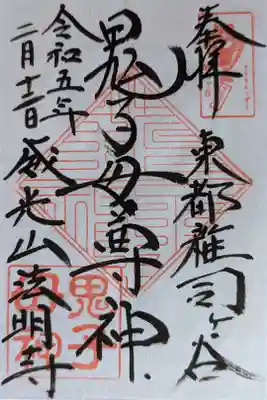 奉拝
東都雑司ヶ谷
鬼子母尊神
威光山法明寺
令和五年
二月十二日
鬼子
母神